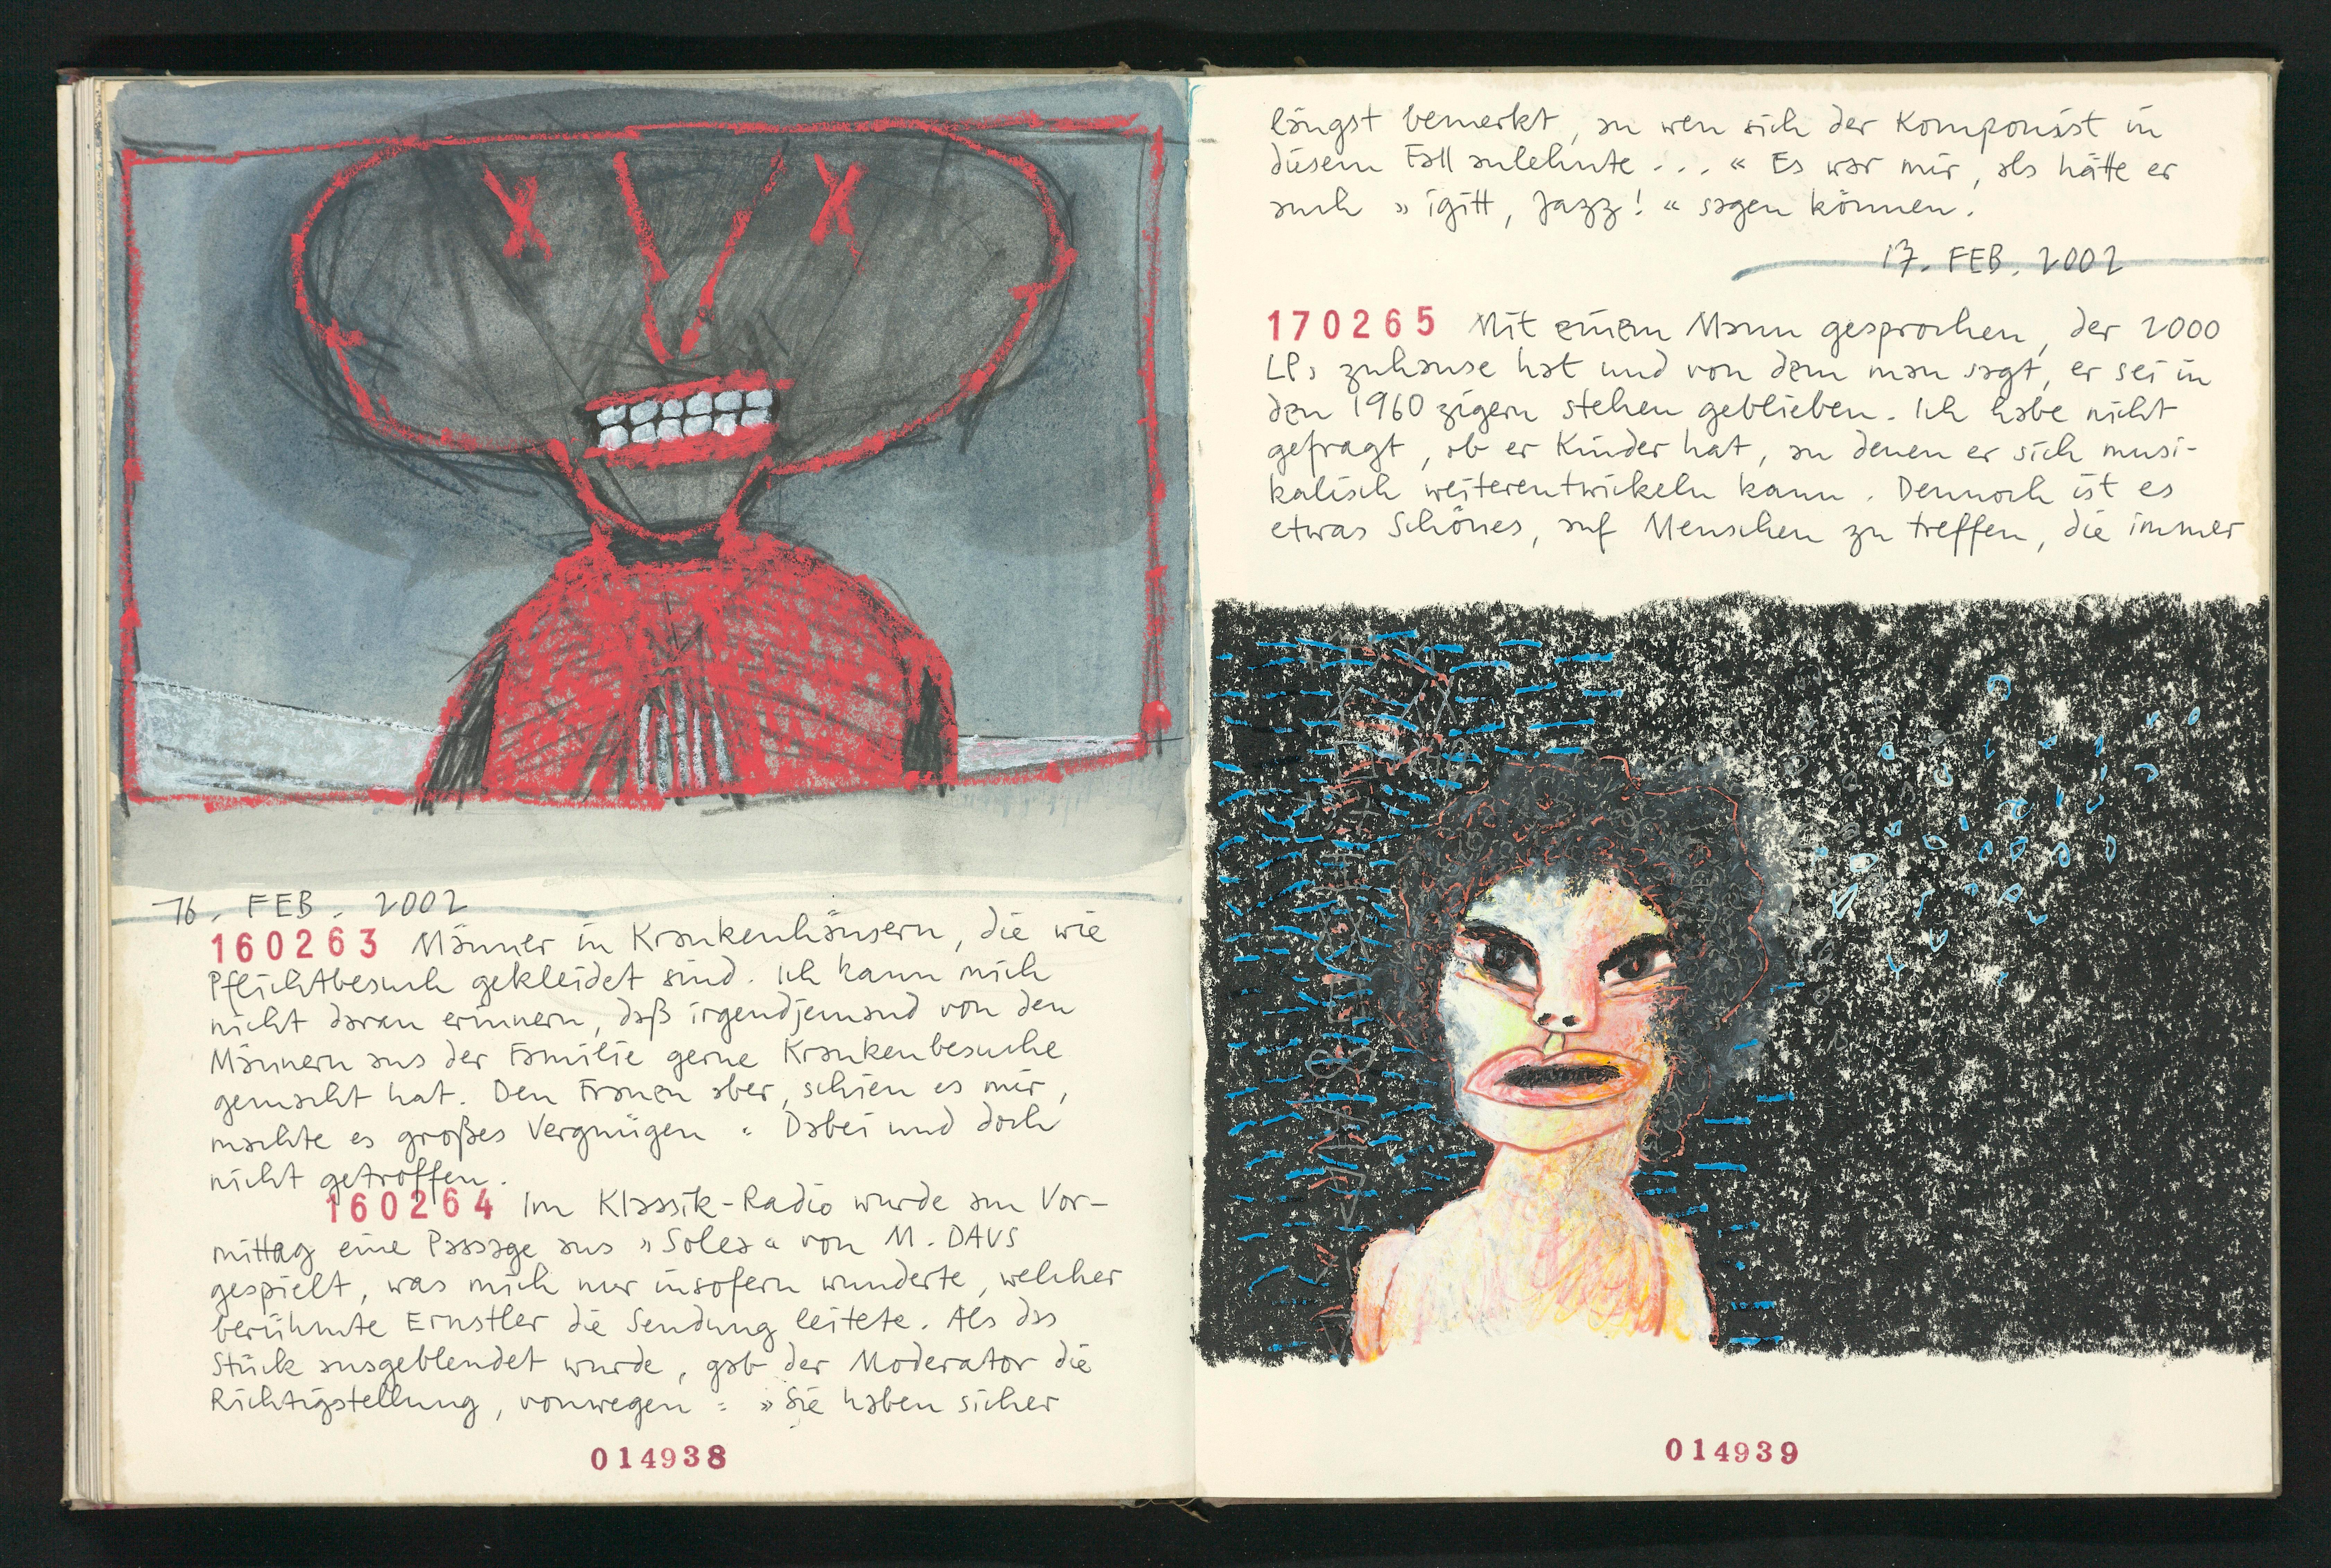 16. FEB. 2002
160263 Männer in Krankenhäusern, die wie
Pflichtbesuch gekleidet sind. Ich kann mich
nicht daran erinnern, daß irgendjemand von den
Männern aus der Familie gerne Krankenbesuche
gemacht hat. Den Frauen aber, schien es mir,
machte es großes Vergnügen. Dabei und doch
nicht getroffen.
160264 Im Klassik-Radio wurde am Vor-
mittag eine Passage aus »Solea« von M. DAVS
gespielt, was mich nur insofern wunderte, welcher
berühmte Ernstler die Sendung leitete. Als das
Stück ausgeblendet wurde, gab der Moderator die
Richtigstellung, vonwegen: »Sie haben sicher
014938
längst bemerkt, an wen sich der Komponist in
diesem Fall anlehnte... « Es war mir, als hätte er
auch »igitt, Jazz!« sagen können.
17. FEB. 2002
170265 Mit einem Mann gesprochen, der 2000
LPs zuhause hat und von dem man sagt, er sei in
den 1960zigern stehen geblieben. Ich habe nicht
gefragt, ob er Kinder hat, an denen er sich musi-
kalisch weiterentwickeln kann. Dennoch ist es
etwas Schönes, auf Menschen zu treffen, die immer
014939